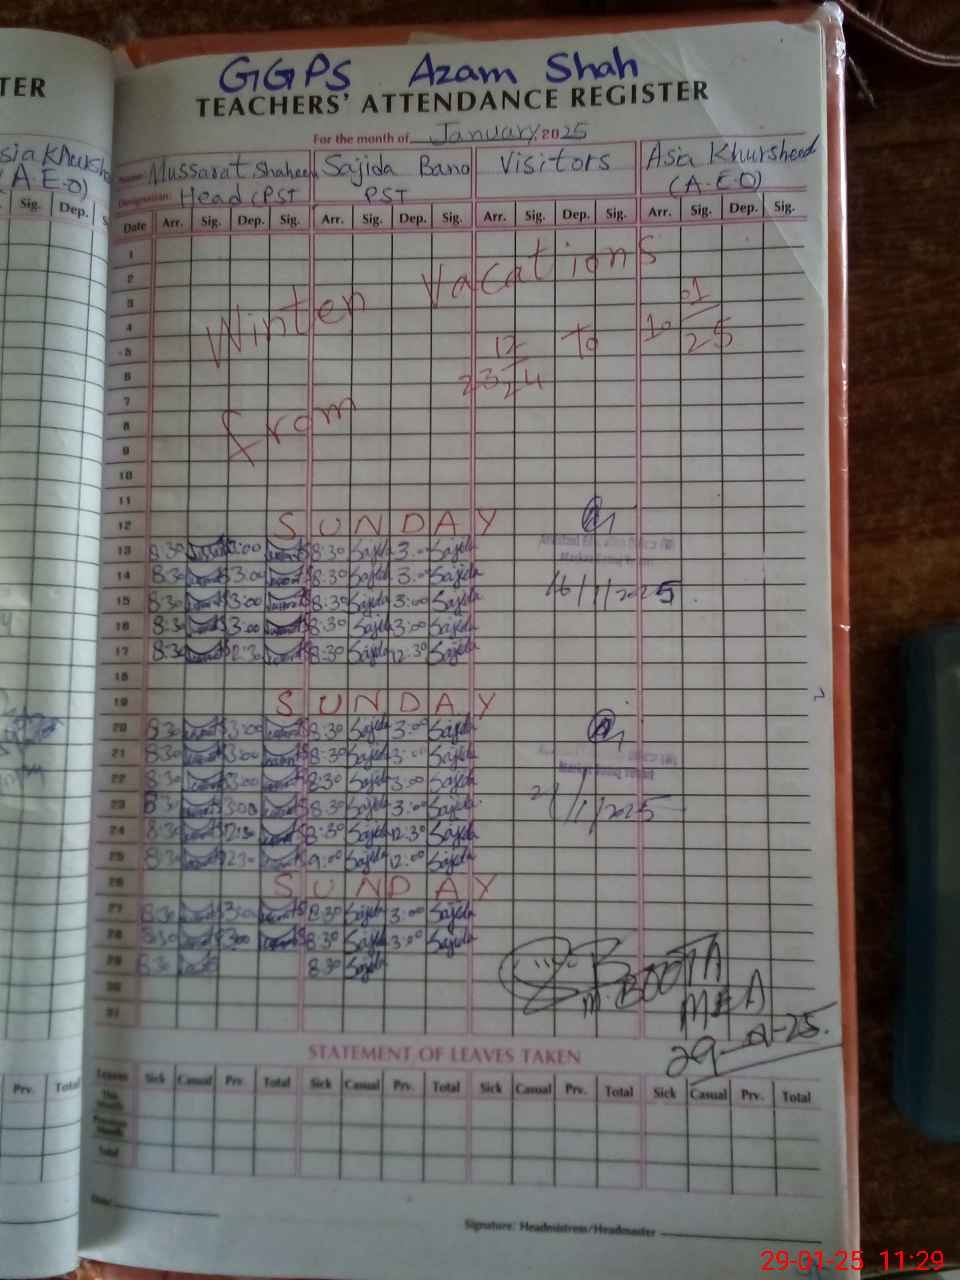 GGPS Azam Shah
TEACHERS' ATTENDANCE REGISTER
For the month of January 2025
Name: Mussarat Shaheen Sajida Bano Visitors Asia Khursheed
Designation: Head/PST PST (A.E.O)
Date Arr. Sig. Dep. Sig. Arr. Sig. Dep. Sig. Arr. Sig. Dep. Sig. Arr. Sig. Dep. Sig.
1
2 Winter Vacations
3
4
5 from 23 12/24 To 10 01/25
6
7
8
9
10
11
12 SUNDAY
13 8:30 3:00 8:30 Sajida 3:00 Sajida
14 8:30 3:00 8:30 Sajida 3:00 Sajida
15 8:30 3:00 8:30 Sajida 3:00 Sajida 16/1/2025
16 8:30 3:00 8:30 Sajida 3:00 Sajida
17 8:30 12:30 8:30 Sajida 12:30 Sajida
18
19 SUNDAY
20 8:30 3:00 8:30 Sajida 3:00 Sajida
21 8:30 3:00 8:30 Sajida 3:00 Sajida
22 8:30 3:00 8:30 Sajida 3:00 Sajida
23 8:30 3:00 8:30 Sajida 3:00 Sajida /1/2025
24 8:30 12:30 8:30 Sajida 12:30 Sajida
25 8:30 12:30 9:00 Sajida 12:00 Sajida
26 SUNDAY
27 8:30 3:00 8:30 Sajida 3:00 Sajida
28 8:30 3:00 8:30 Sajida 3:00 Sajida
29 8:30 8:30 Sajida
30 M. BOOTA
31 MEA
STATEMENT OF LEAVES TAKEN
Leaves Sick Casual Prv. Total Sick Casual Prv. Total Sick Casual Prv. Total Sick Casual Prv. Total
This Month
Previous Month
Total
Date
Signature: Headmistress/Headmaster
TER
Asia Khurshe
(A.E.O)
Sig. Dep. S
Prv. Total
29-01-25 11:29